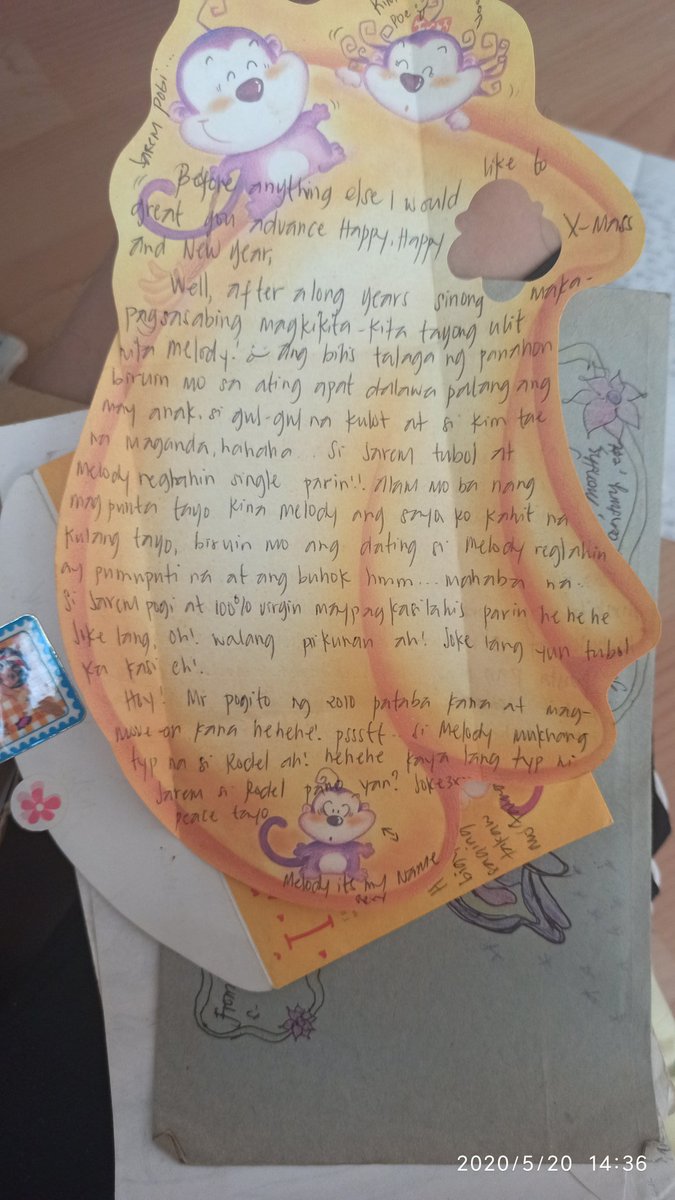 Kim
Poe
Sarem pogi...
Before anything else I would like to
great you advance Happy, Happy X-Mass
and New year,
Well, after along years sinong maka-
pagsasabing magkikita-kita tayong ulit
nila melody! ang bilis talaga ng panahon
biruin mo sa ating apat dalawa palang ang
may anak. si gul-gul na kulot at si kim tae
na maganda, hahaha.. Si Sarem tubol at
Melody reglahin single parin!! alam mo ba nang
magpunta tayo kina melody ang saya ko kahit na
kulang tayo, biruin mo ang dating si Melody reglahin
ay pumuputi na at ang buhok hmm... mahaba na.
Si Sarem pogi at 100% virgin maypagkasilahis parin hehehe
Joke lang, oh! walang pikunan ah! Joke lang yun tubol
ka kasi eh!.
Hoy! Mr pogito ng 2010 pataba kana at mag-
move-on kana hehehe! pssstt.. si Melody mukhang
typ na si Rodel ah! hehehe kaya lang typ ni
Sarem si Rodel pano yan? Joke3x
peace tayo
Melody its my Name
from
2020/5/20 14:36